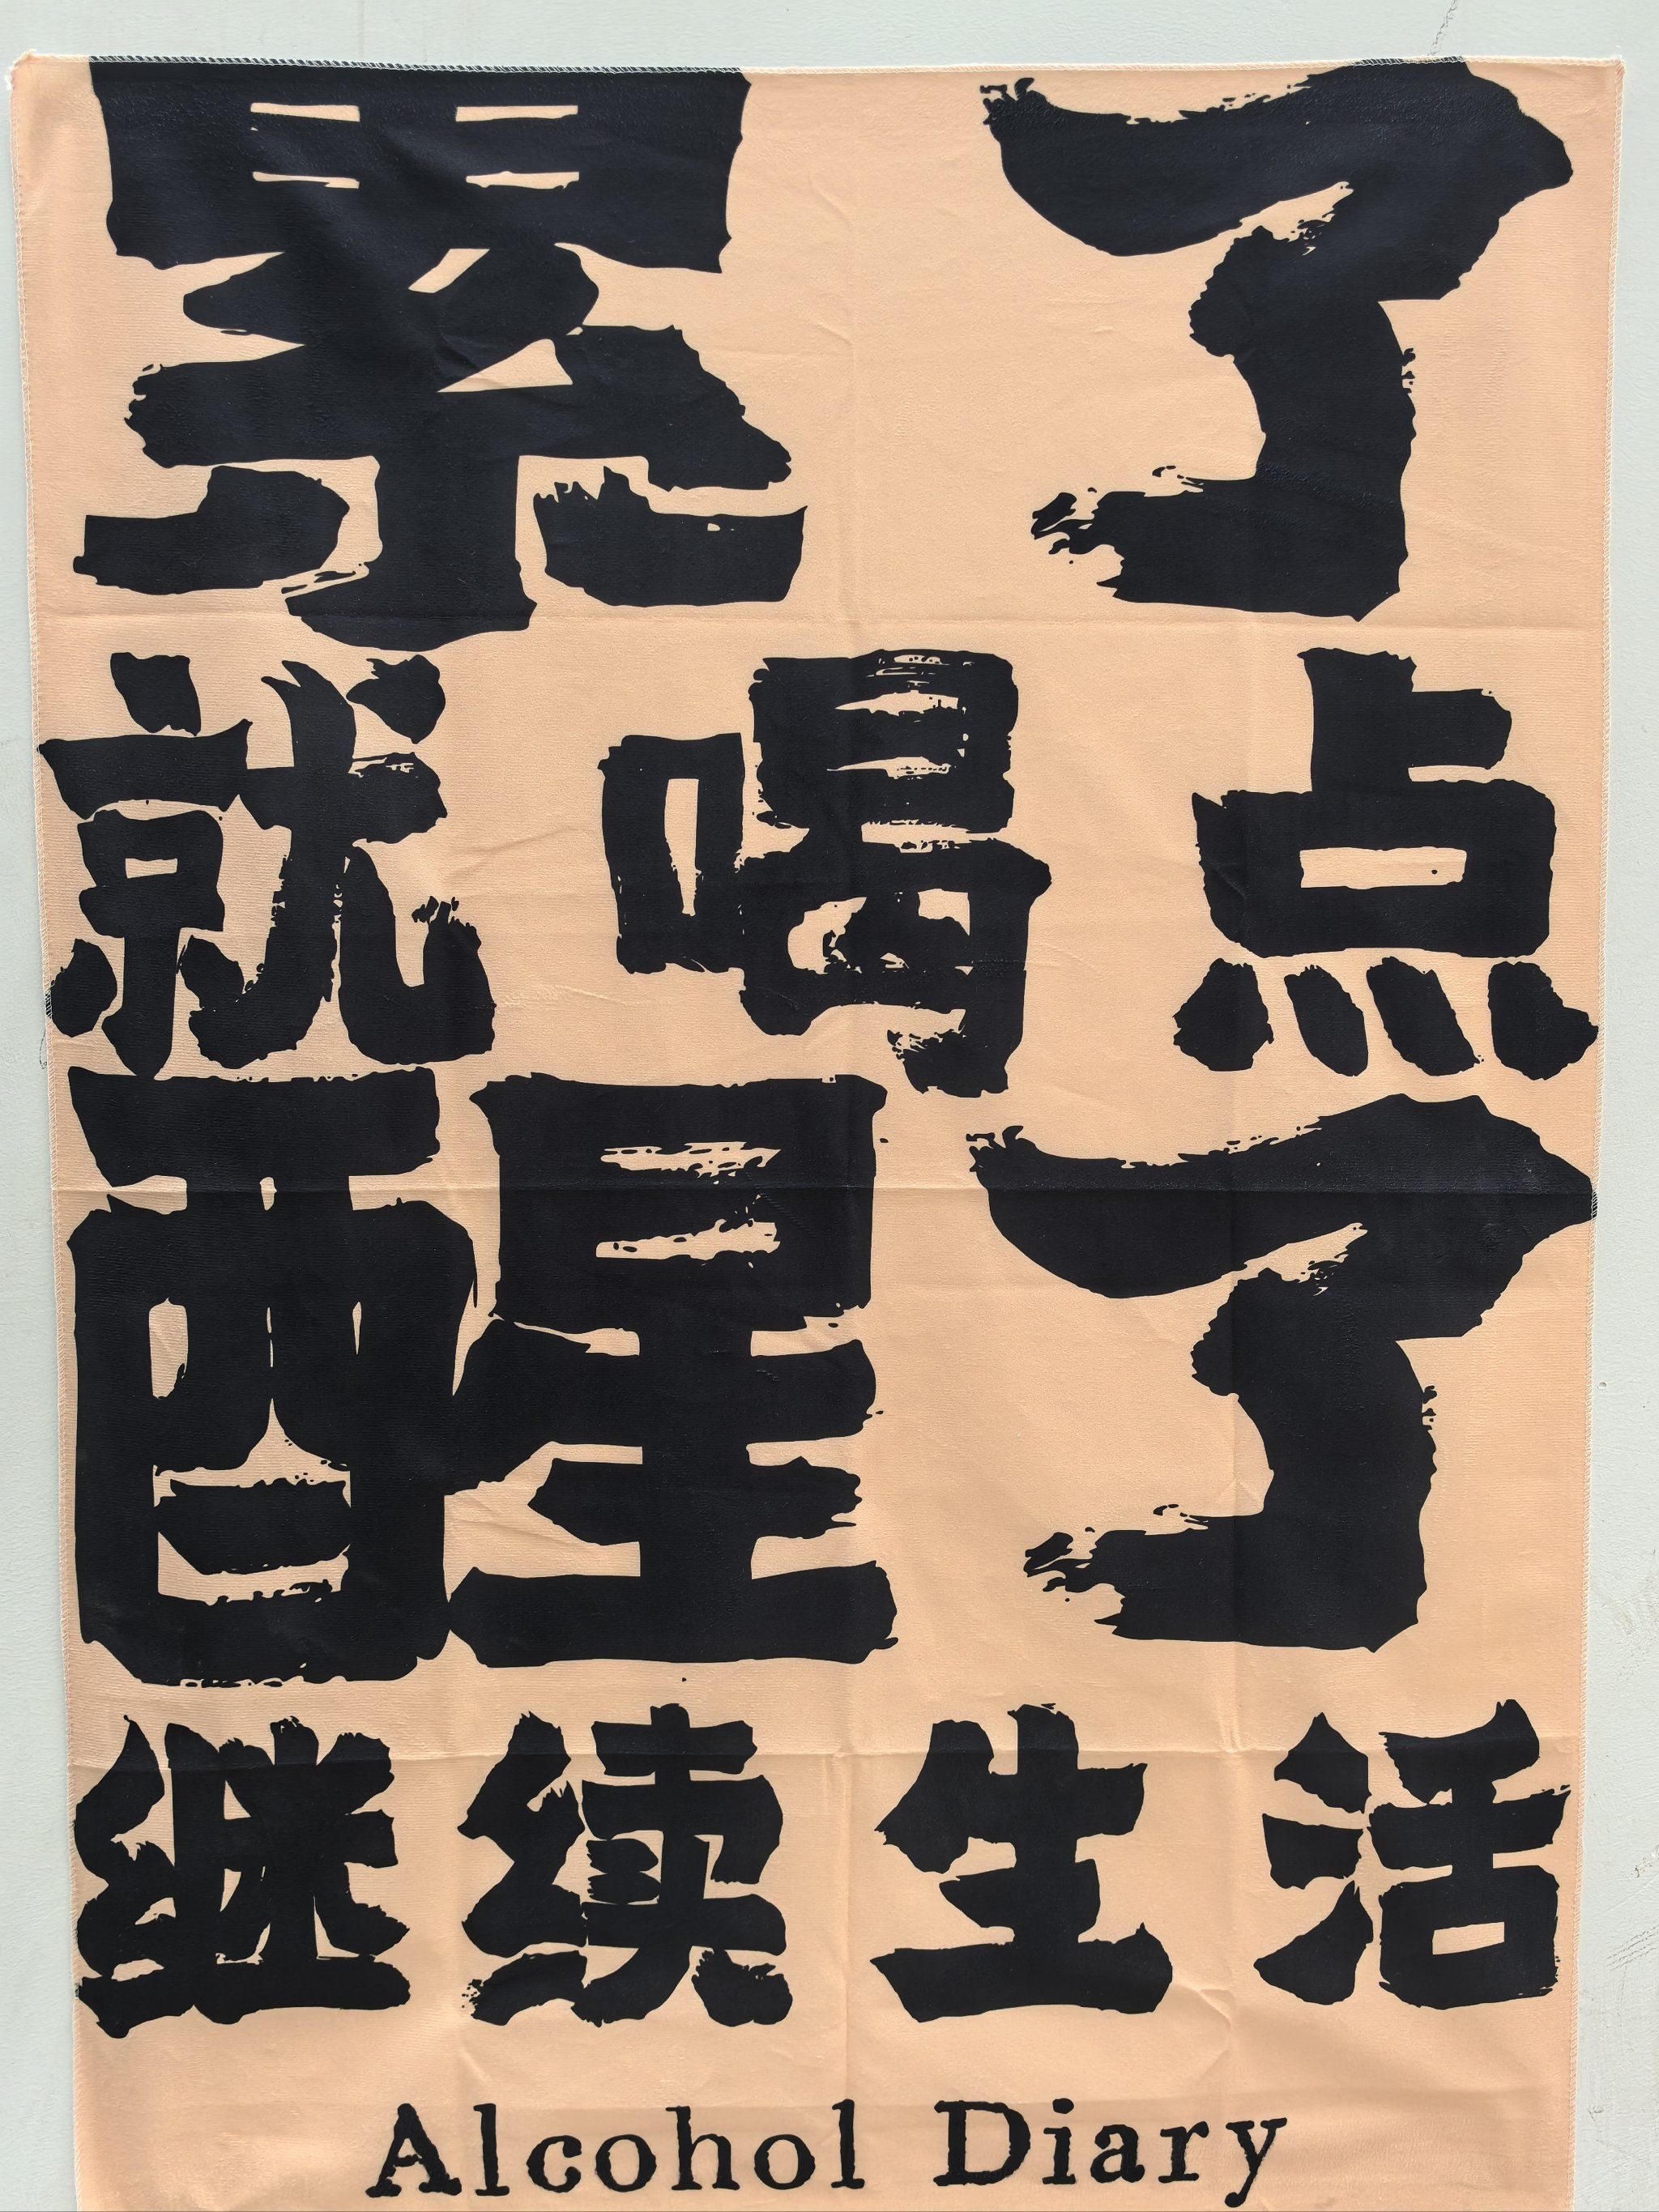 累了
就喝点
醒了
继续生活
Alcohol Diary